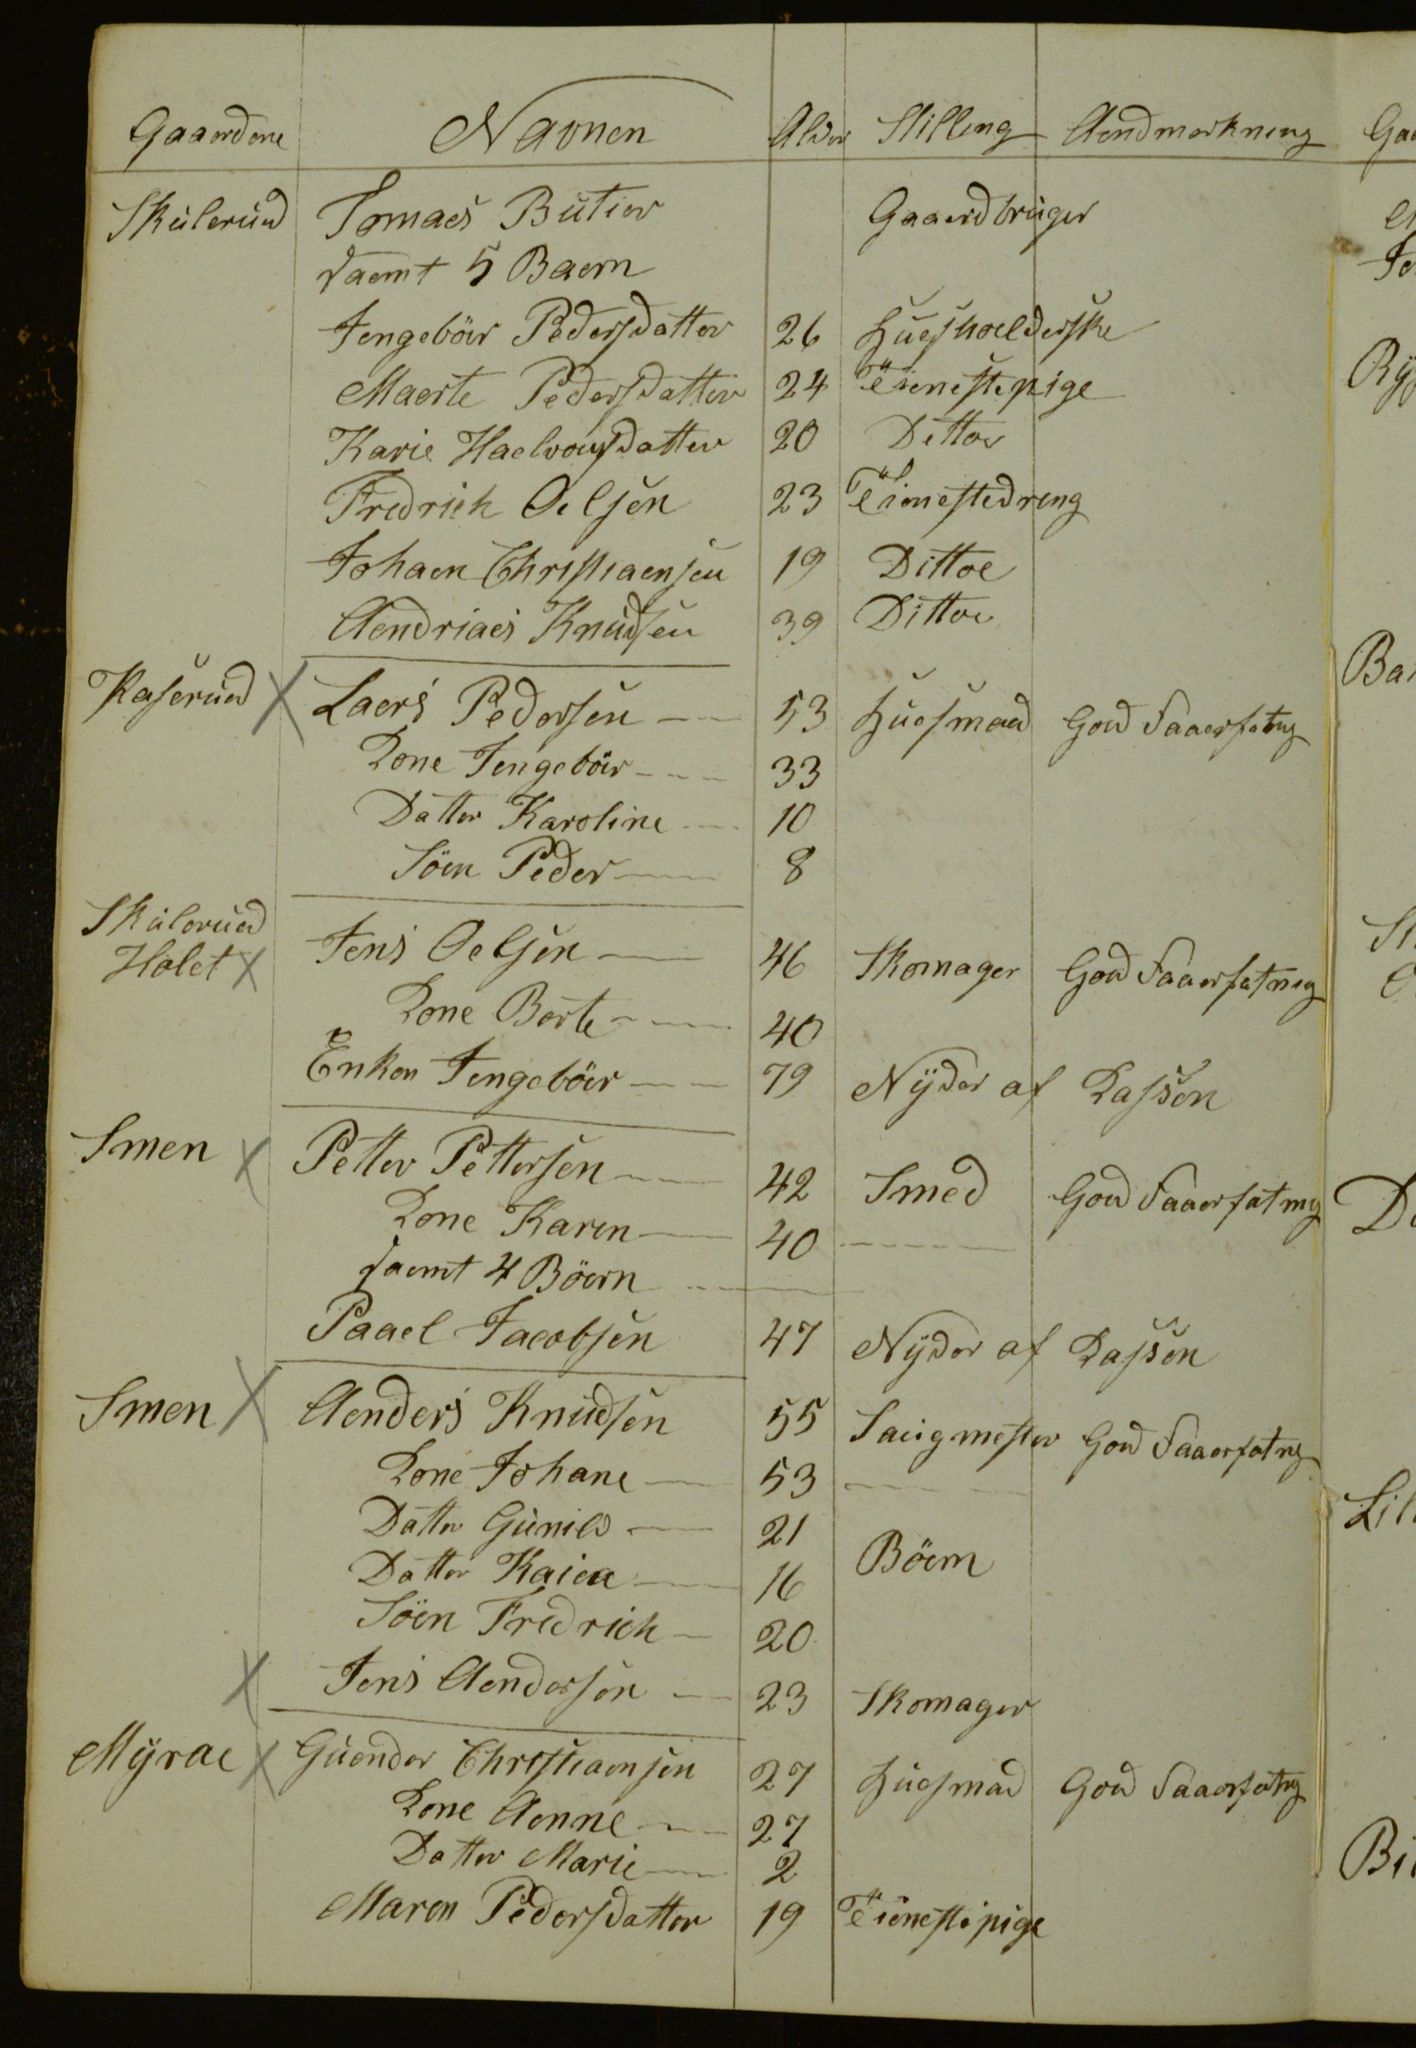 Gaardene Navnen Alder Stilling Aendmerkning
Skulerud Tomaes Butier Gaaerdbruger
Saemt 5 Baern
Jengebör Pedersdatter 26 Huesholderske
Maerte Pedersdatter 24 Tienestepige
Karie Haelvorsdatter 20 Dettoe
Fredrich Oelsen 23 Tienestedreng
Johaen Christiaensen 19 Dittoe
Aendriaes Knudsen 39 Dittoe
Kaserud X Laers Pedersen 53 Huesmaed God Faaerfatng
Kone Jengebör 33
Datter Karoline 10
Söen Peder 8
Skulerud
Holet X Jens Oelsen 46 Skomager God Faaerfatneg
Kone Börte 40
Enken Jengebör 79 Nÿder af Kassen
Smen X Petter Pettersen 42 Smed God Faaerfatneg
Kone Karen 40
Saemt 4 Böern
Paael Jacobsen 47 Nÿder af Kassen
Smen X Aenders Knudsen 55 Saugmester God Faaerfatng
Kone Johane 53
Datter Gunild 21
Datter Kaiea 16 Böern
Söen Fredrich 20
X Jens Aendersen 23 Skomager
Mÿrae X Guender Christiaensen 27 Huesmad God Faaerfatng
Kone Aenne 27
Datter Marie 2
Maren Pedersdatter 19 Tienestepige